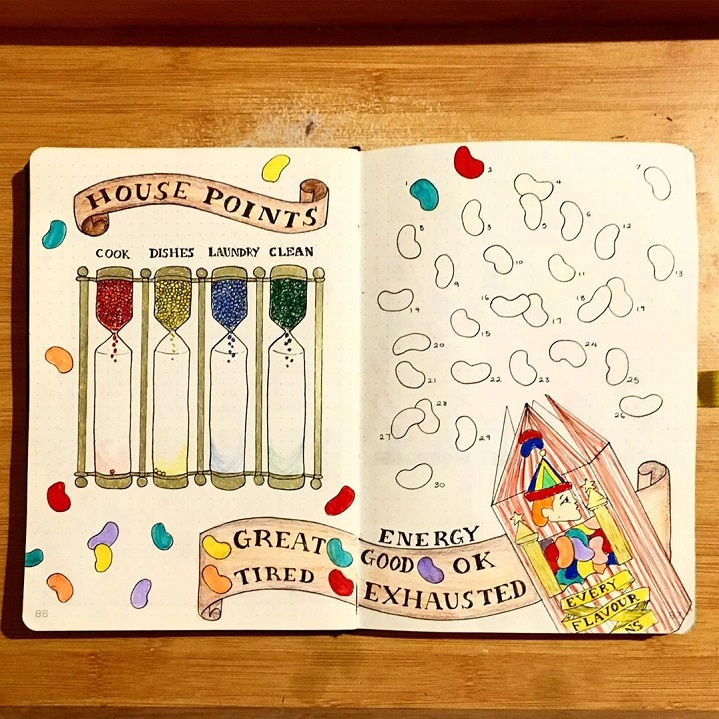 HOUSE POINTS
COOK DISHES LAUNDRY CLEAN
1 2 4 7
3 5 6 12
8 9 10 11 13
14 15 16 17 18 19
20 24
21 22 23 25
26
27 28 29
30
ENERGY
GREAT GOOD OK
TIRED EXHAUSTED
EVERY
FLAVOUR
NS
86